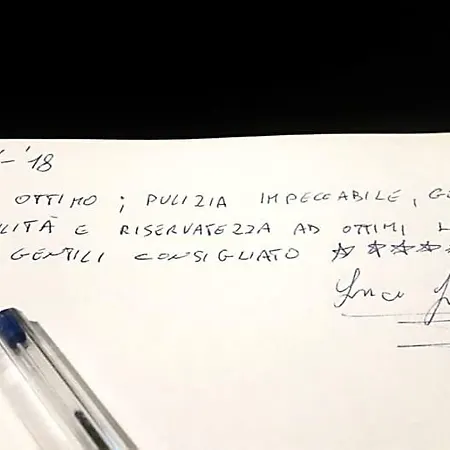 '18
OTTIMO ; PULIZIA IMPECCABILE,
E RISERVATEZZA AD OTTIMI
GENTILI CONSIGLIATO ☆☆☆☆☆